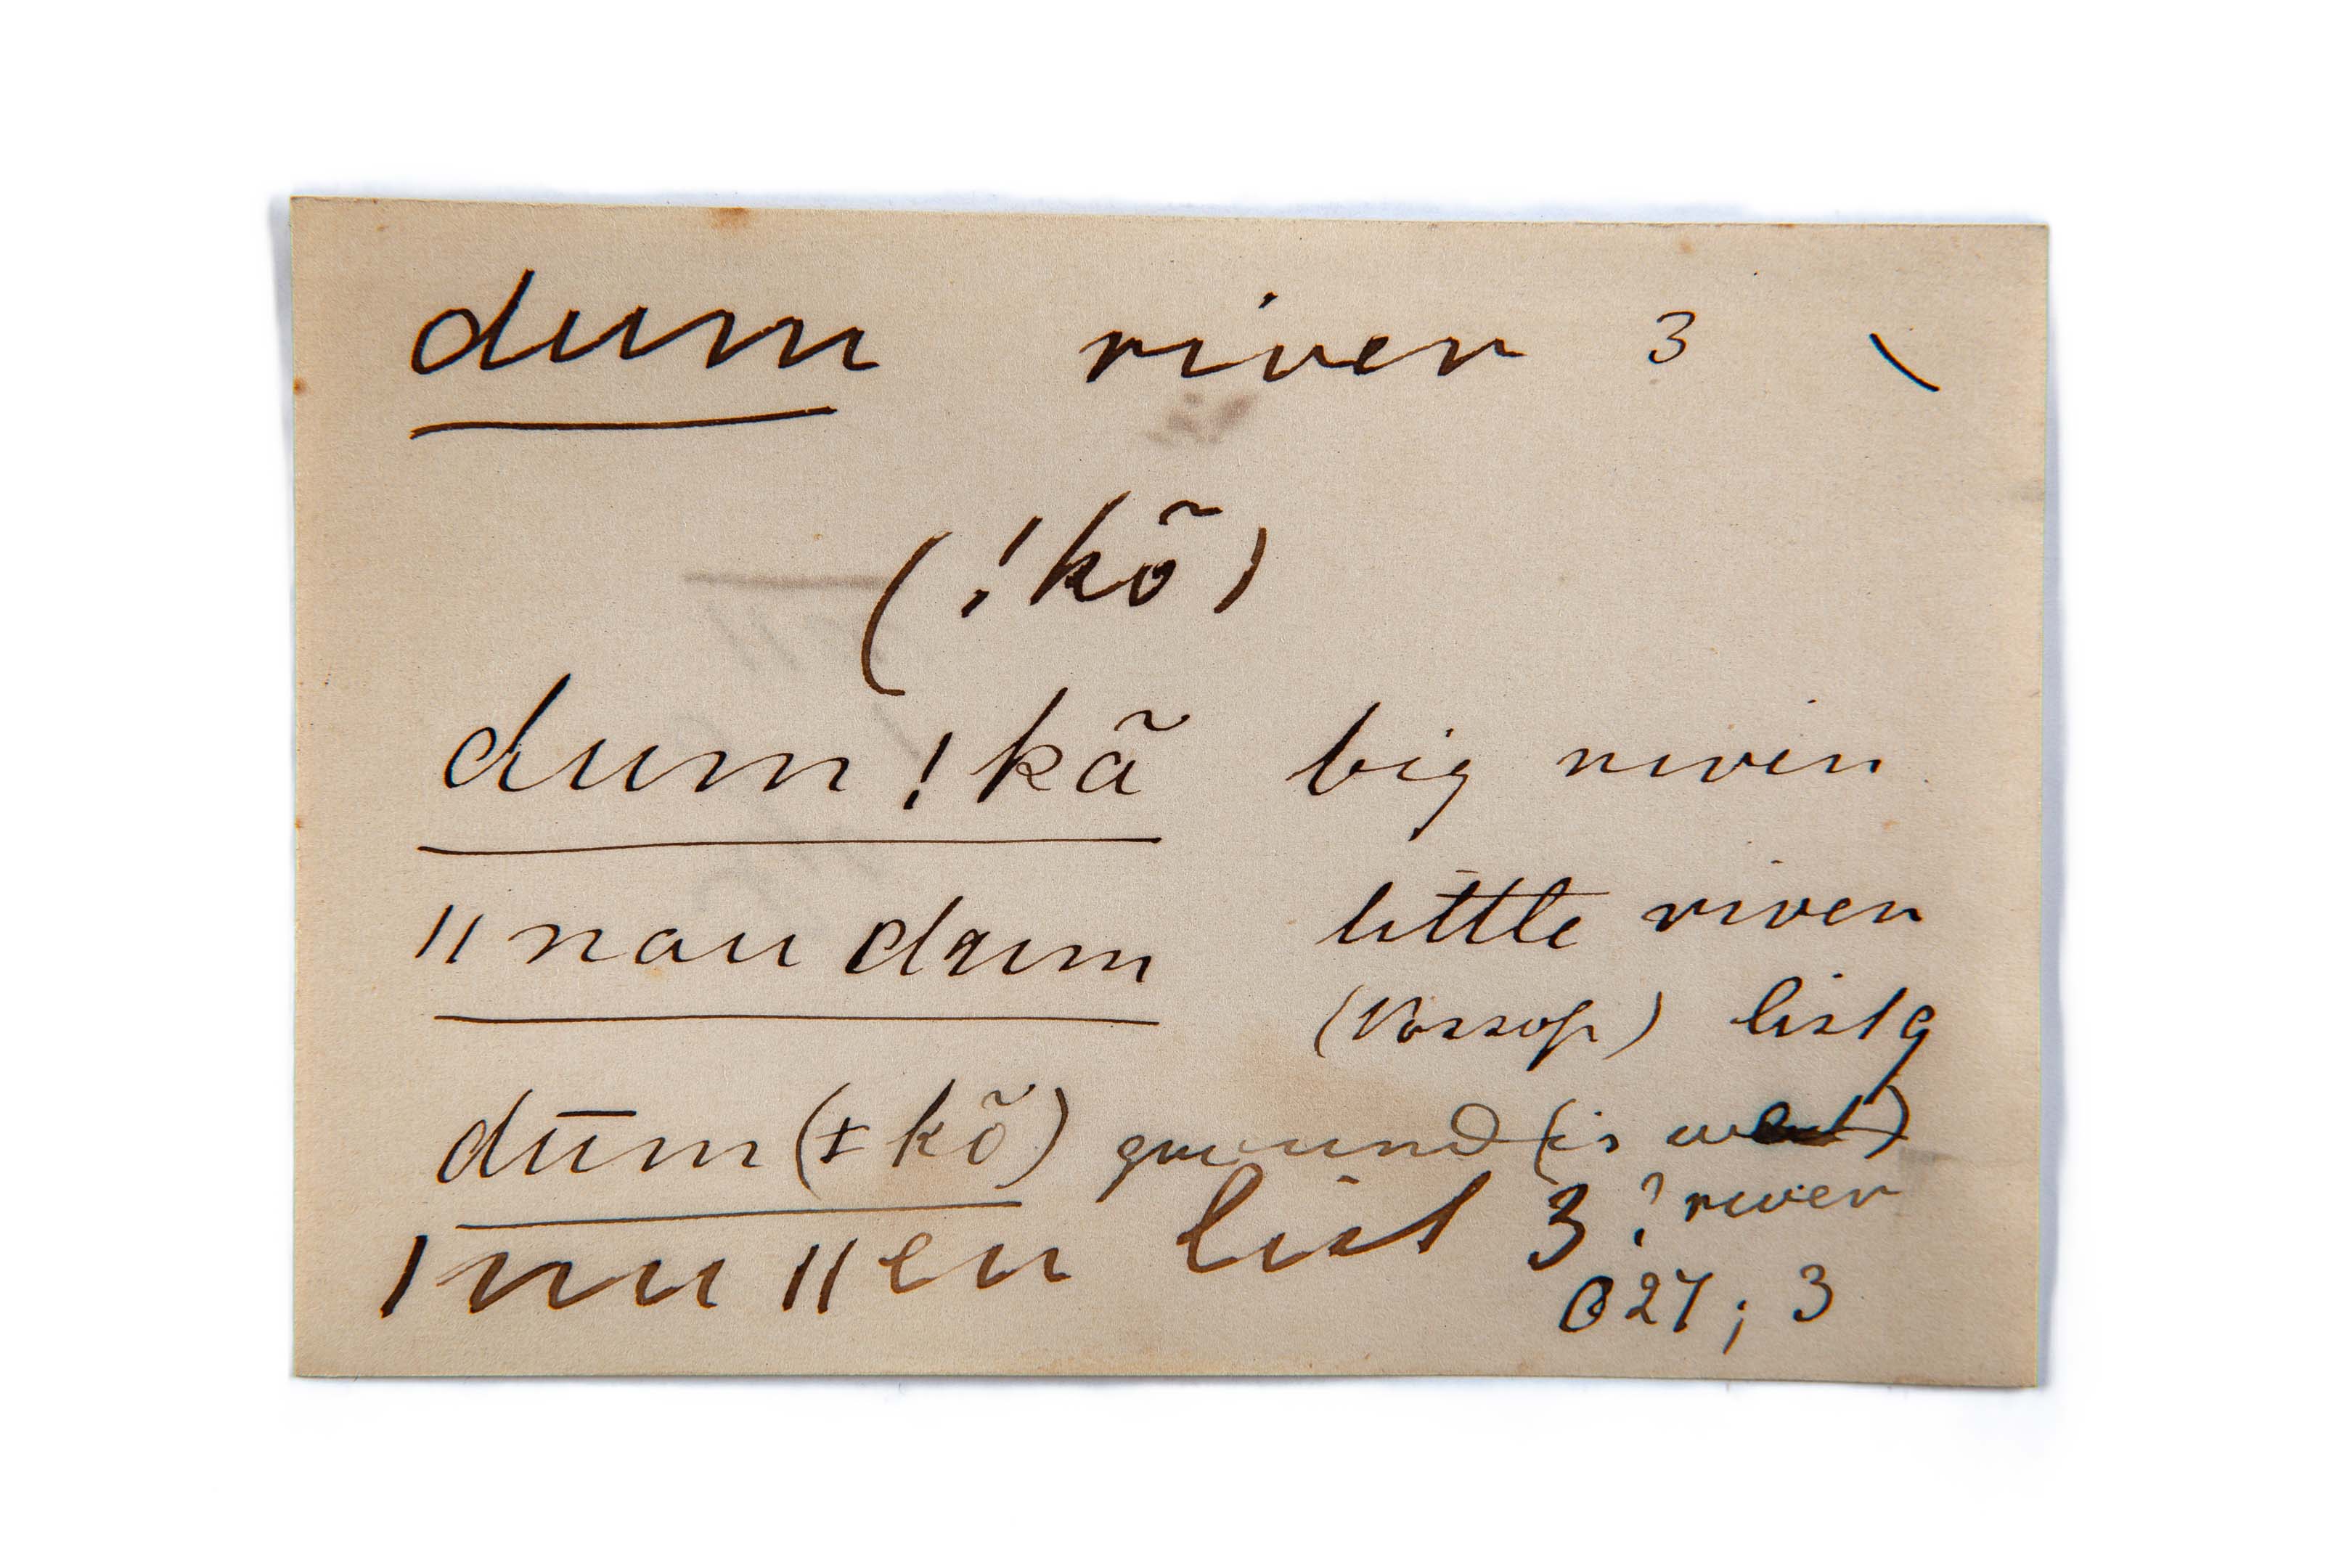 dum river 3 \
(!kõ)
dum !kã big river
ǁnau dum little river
(Vossop) list 9
dūm (ǂkõ) ground (is wet)
ǀnu ǁen list 3 ? river
027; 3